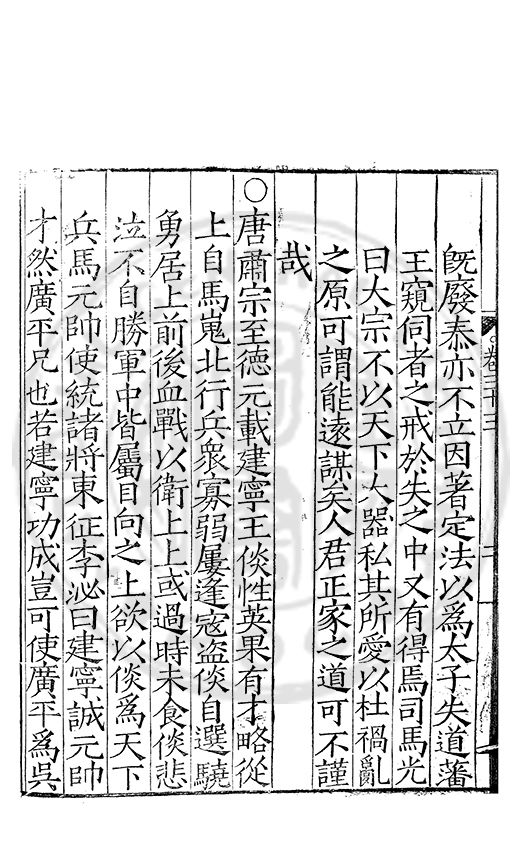 卷二十三
既廢泰亦不立因著定法以爲太子失道藩
王窺伺者之戒於失之中又有得焉司馬光
曰大宗不以天下大器私其所愛以杜禍亂
之原可謂能遠謀矣人君正家之道可不謹
哉
○唐肅宗至德元載建寧王倓性英果有才略從
上自馬嵬北行兵衆寡弱屢逢寇盜倓自選驍
勇居上前後血戰以衛上上或過時未食倓悲
泣不自勝軍中皆屬目向之上欲以倓爲天下
兵馬元帥使統諸將東征李泌曰建寧誠元帥
才然廣平兄也若建寧功成豈可使廣平爲吳